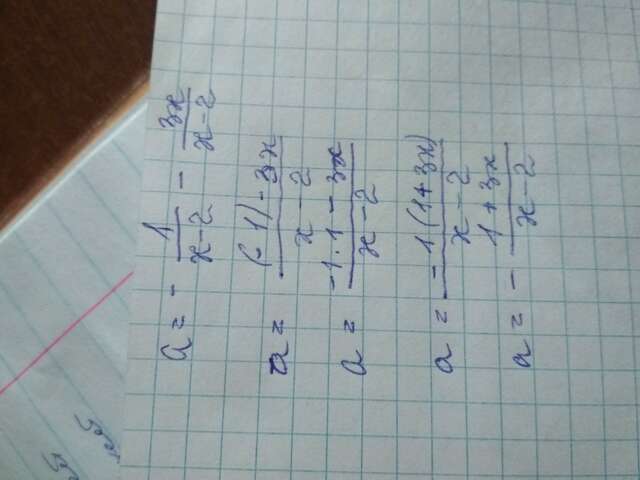 a = - 1/(x-2) - 3x/(x-2)
a = ((-1)-3x)/(x-2)
a = (-1·1-3x)/(x-2)
a = (-1(1+3x))/(x-2)
a = - (1+3x)/(x-2)